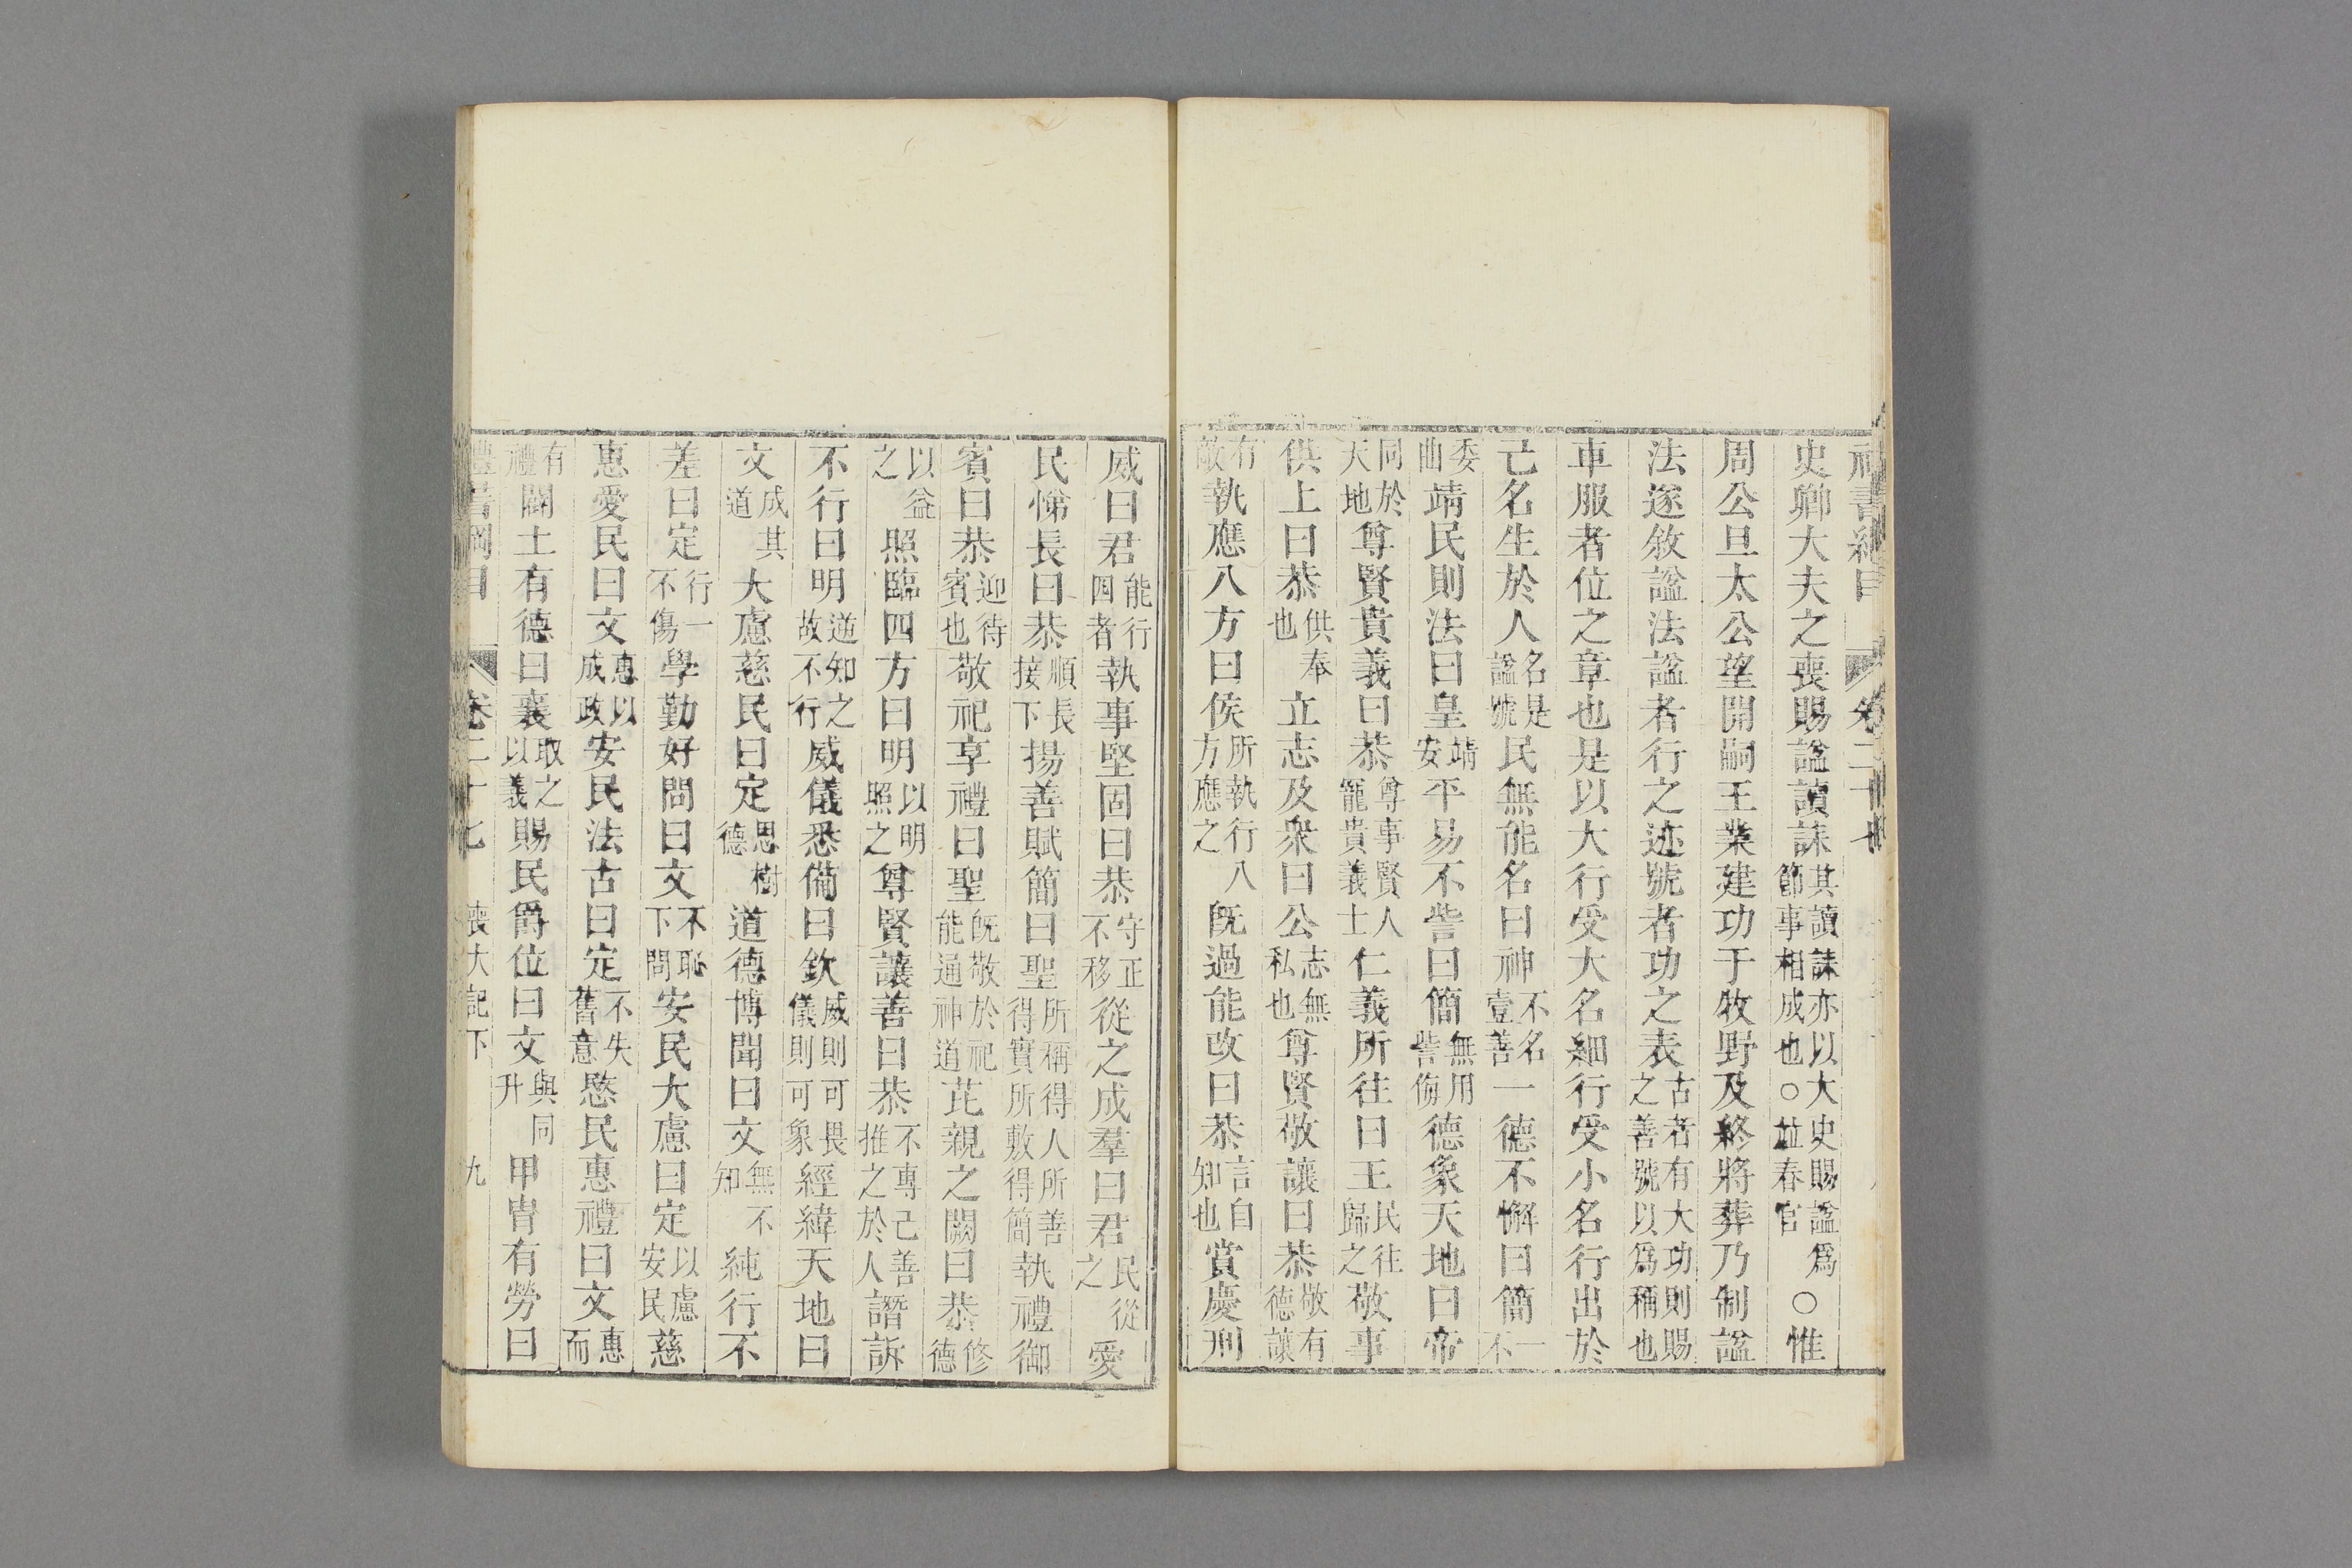 禮書綱目 卷二十七
史卿大夫之喪賜諡讀誄其讀誄亦以大史賜諡爲節事相成也○並春官○惟
周公旦太公望開嗣王業建功于牧野及終將葬乃制諡
法遂敘諡法諡者行之迹號者功之表古者有大功則賜之善號以爲稱也
車服者位之章也是以大行受大名細行受小名行出於
己名生於人名是諡號民無能名曰神不名壹善一德不懈曰簡一不
委曲靖民則法曰皇靖安平易不訾曰簡無用訾侮德象天地曰帝
同於天地尊賢貴義曰恭尊事賢人寵貴義士仁義所往曰王民往歸之敬事
供上曰恭供奉也立志及衆曰公志無私也尊賢敬讓曰恭敬有德讓
有敵執應八方曰侯所執行八方應之旣過能改曰恭言自知也賞慶刑
威曰君能行四者執事堅固曰恭守正不移從之成羣曰君民從之愛
民悌長曰恭順長接下揚善賦簡曰聖所稱得人所善得實所敷得簡執禮御
賓曰恭迎待賓也敬祀享禮曰聖旣敬於祀能通神道芘親之闕曰恭修德
以益之照臨四方曰明以明照之尊賢讓善曰恭不專己善推之於人譖訴
不行曰明逆知之故不行威儀悉備曰欽威則可畏儀則可象經緯天地曰
文成其道大慮慈民曰定思樹德道德博聞曰文無不知純行不
差曰定行一不傷學勤好問曰文不恥下問安民大慮曰定以慮安民慈
惠愛民曰文惠以成政安民法古曰定不失舊意愍民惠禮曰文惠而
有禮闢土有德曰襄取之以義賜民爵位曰文與同升甲胄有勞曰
禮書綱目 卷二十七 喪大記下 九